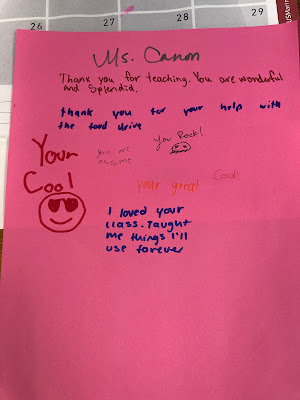 26
28
29
Ms. Canon
Thank you for teaching. You are wonderful
and Splendid.
thank you for your help with
the food drive
You Rock!
Your
Cool
you are
awesome
your great
Cool!
I loved your
class. Taught
me things I'll
use forever